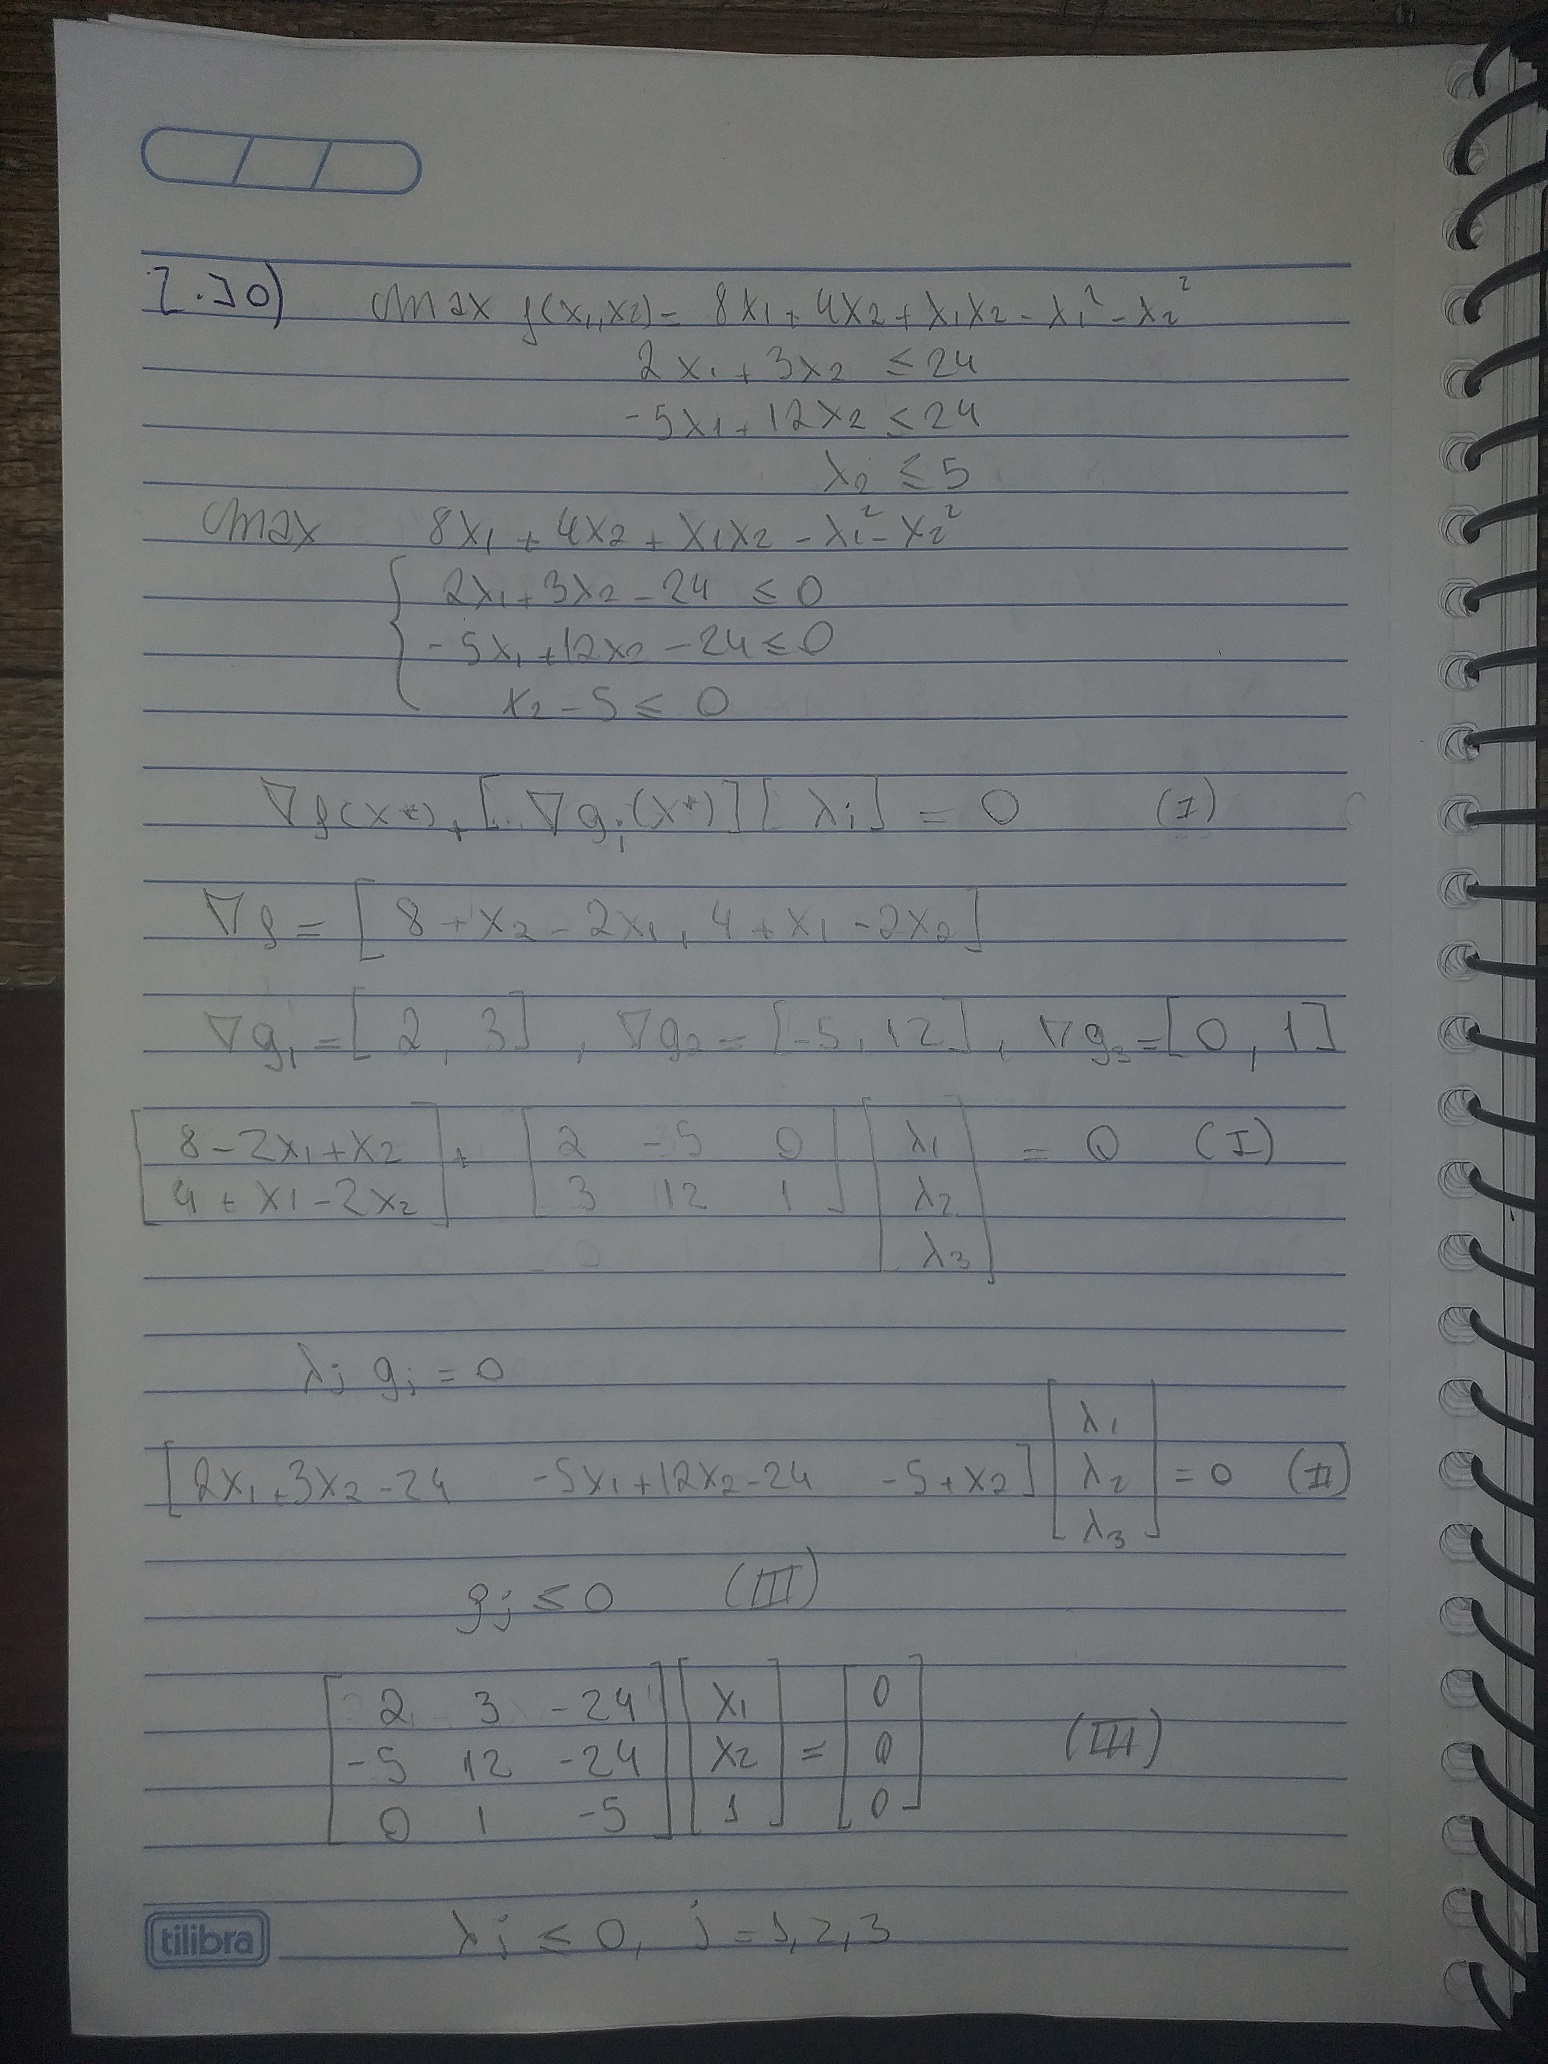 2.30) max f(x₁,x₂) = 8x₁ + 4x₂ + x₁x₂ - x₁² - x₂²
2x₁ + 3x₂ ≤ 24
-5x₁ + 12x₂ ≤ 24
x₂ ≤ 5
max 8x₁ + 4x₂ + x₁x₂ - x₁² - x₂²
{ 2x₁ + 3x₂ - 24 ≤ 0
-5x₁ + 12x₂ - 24 ≤ 0
x₂ - 5 ≤ 0
∇f(x*) + [... ∇gⱼ(x*)] [λⱼ] = 0 (I)
∇f = [8 + x₂ - 2x₁, 4 + x₁ - 2x₂]
∇g₁ = [2, 3], ∇g₂ = [-5, 12], ∇g₃ = [0, 1]
[8 - 2x₁ + x₂] + [2 -5 0] [λ₁] = 0 (I)
[4 + x₁ - 2x₂] [3 12 1] [λ₂]
[λ₃]
λⱼ gⱼ = 0
[λ₁]
[2x₁ + 3x₂ - 24 -5x₁ + 12x₂ - 24 -5 + x₂] [λ₂] = 0 (II)
[λ₃]
gⱼ ≤ 0 (III)
[2 3 -24] [x₁] [0]
[-5 12 -24] [x₂] = [0] (III)
[0 1 -5] [1] [0]
tilibra λⱼ ≤ 0, j = 1, 2, 3